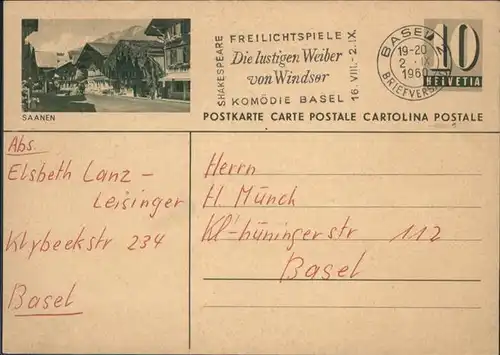 SHAKESPEARE
FREILICHTSPIELE
Die lustigen Weiber
von Windsor
KOMÖDIE BASEL
16. VIII.-2. IX.
BASEL 2
19-20
2. IX
1960
BRIEFVERS
10
HELVETIA
SAANEN
POSTKARTE CARTE POSTALE CARTOLINA POSTALE
Abs.
Elsbeth Lanz-
Leisinger
Klybeekstr 234
Basel
Herrn
H. Münch
Kl-hüningerstr 112
Basel